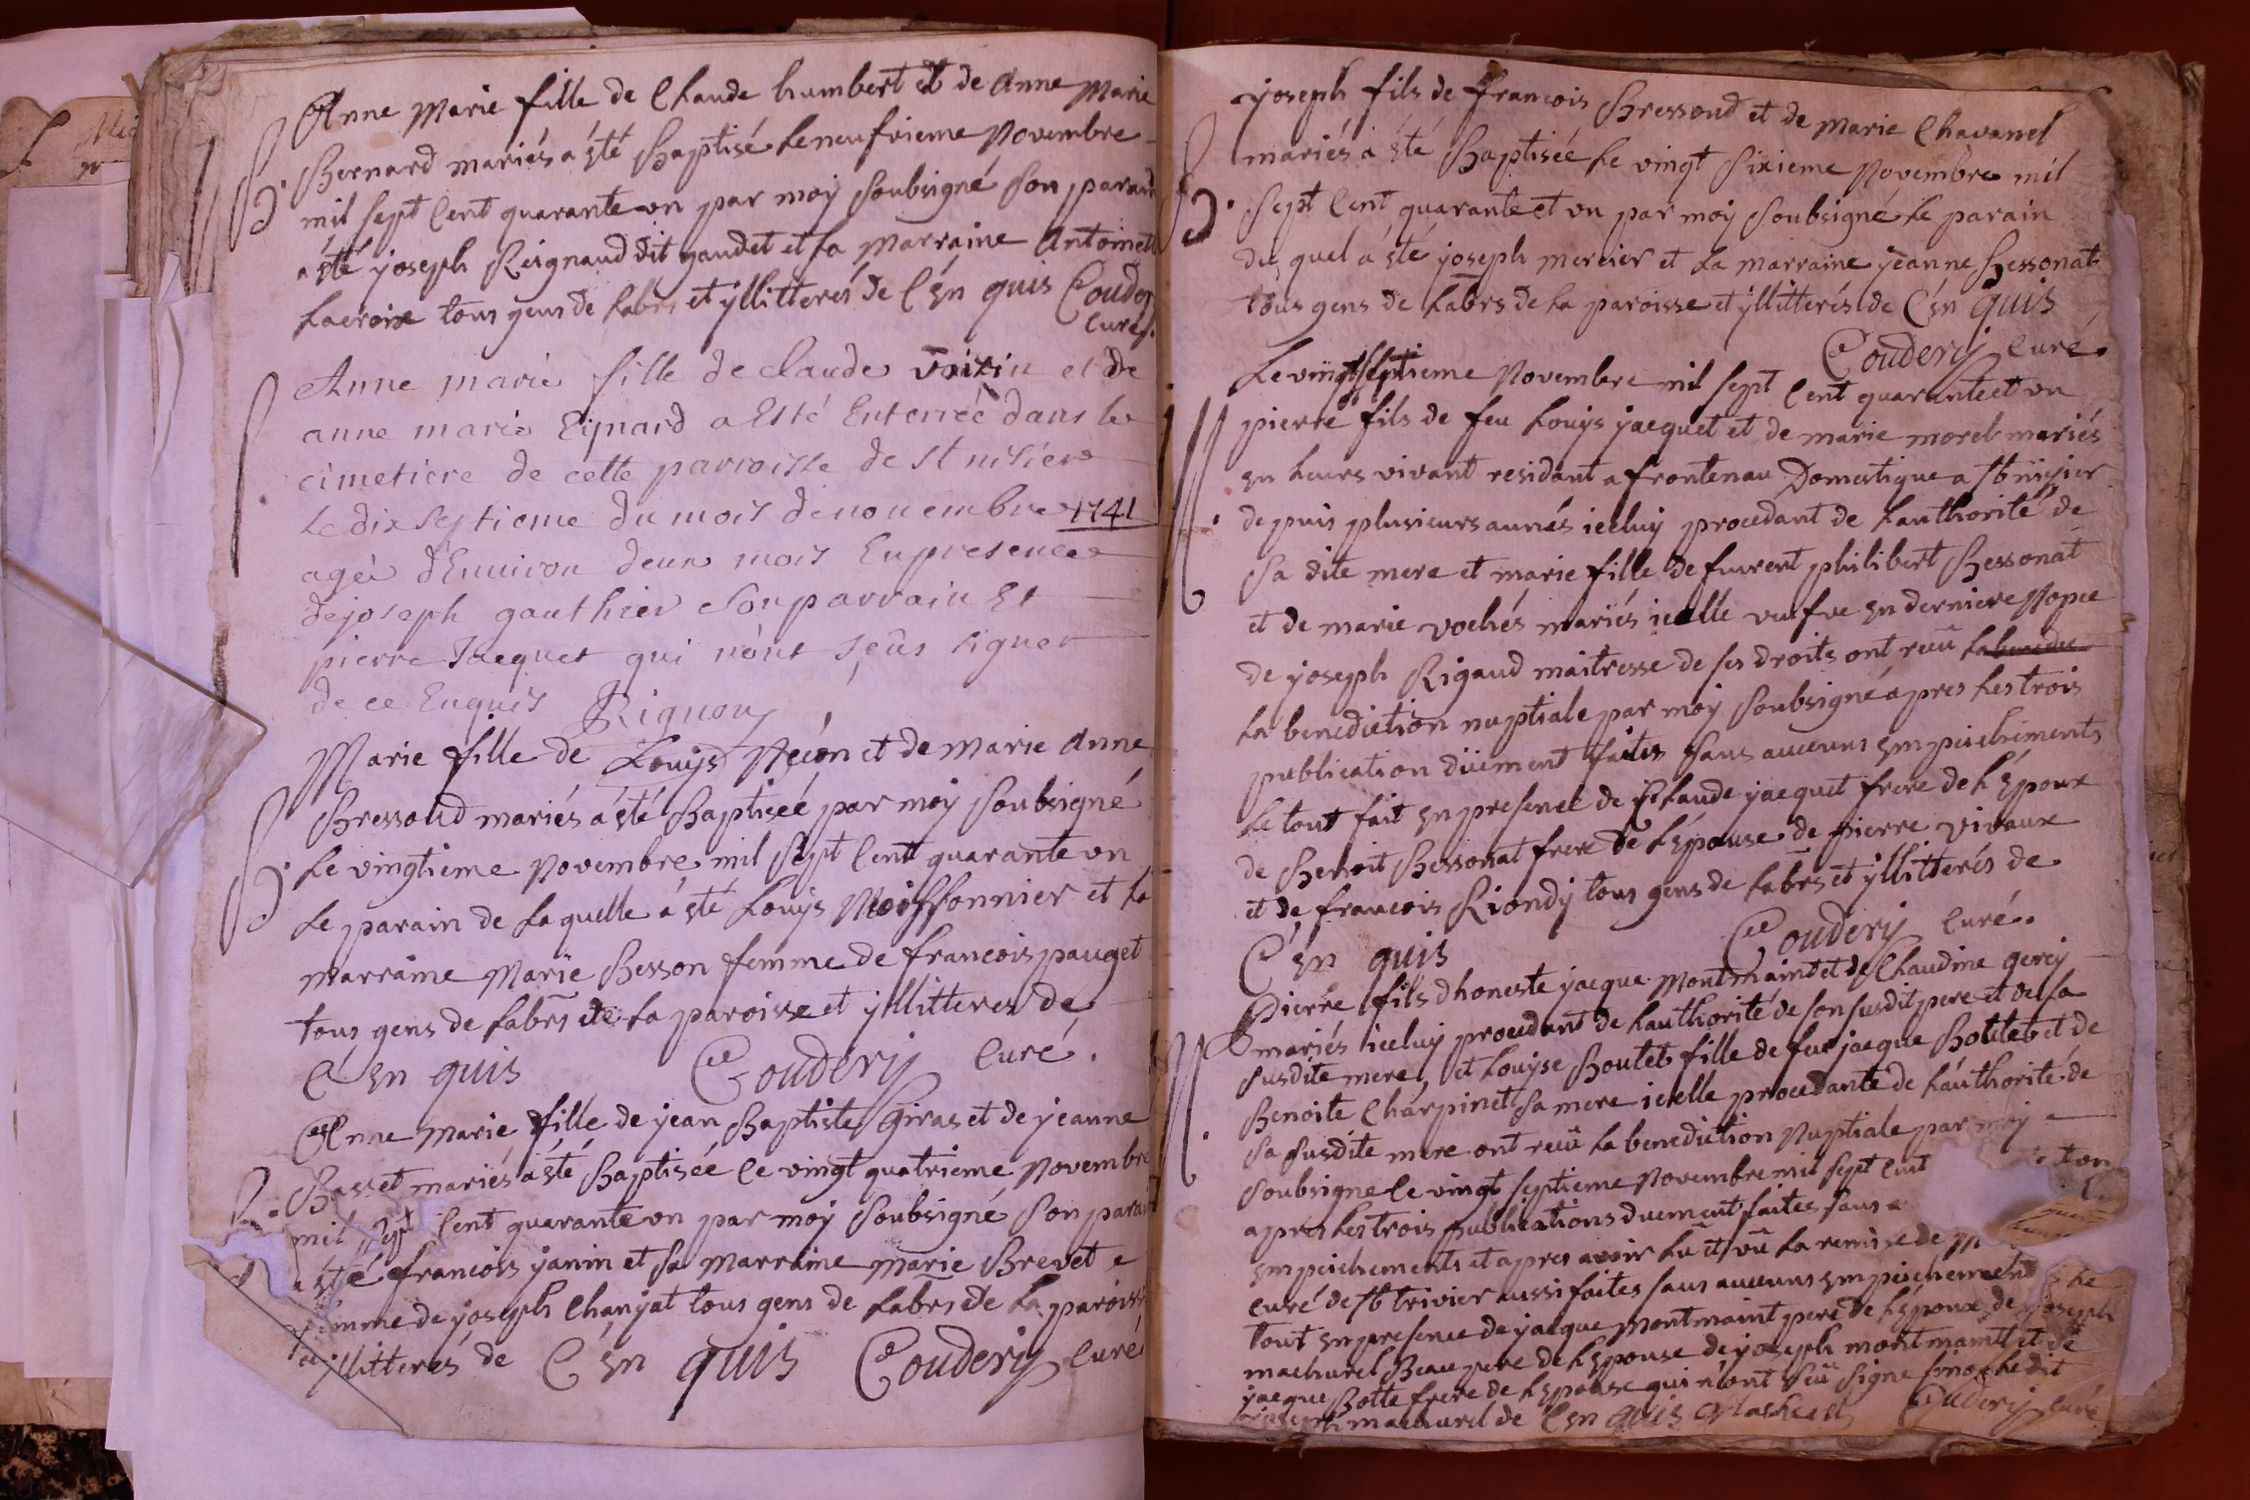 Anne Marie fille de Claude humbert et de Anne Marie
B. Bernard mariés a été Baptisé le neufvieme Novembre
mil sept Cent quarante un par moy soubsigné son parain
a été joseph Reignaud dit gaudet et la Marraine Antoinet
Lacroix tous gens de Labrs et yllitterés de C'en quis Coudery
Curé.
Anne marie fille de claude voizin et de
anne marie Eynard a Esté Enterrée dans le
cimetiere de cette parroisse de st nisier
Le dix septieme du mois de nouembre 1741
agée d'Enuiron deux mois En presence
de joseph gauthier son parrain Et
pierre Jacquet qui n'ont sçeus signer
de ce Enquis Rignoux
Marie fille de Louys Néeon et de Marie Anne
B. Bressoud mariés a été Baptiseé par moy soubsigné
Le vingtieme Novembre mil sept Cent quarante un
Le parain de Laquelle a été Louys Moissonnier et la
marraine Marie Besson femme de francois pauget
tous gens de Labrs de La paroisse et yllitteres de
C'en quis Coudery Curé.
Anne Marie fille de jean Baptiste Giras et de jeanne
B. Basset mariés a été Baptisée le vingt quatrieme Novembre
mil sept Cent quarante un par moy soubsigné son parain
a été francois janin et sa Marraine Marie Brevet
femme de joseph Chanjat tous gens de Labrs de La paroisse
et yllitterés de C'en quis Coudery Curé
joseph fils de francois Bressoud et de Marie Chavanel
mariés a été Baptisée Le vingt sixieme Novembre mil
B. sept Cent quarante et un par moy soubsigné Le parain
du quel a été joseph mercier et La marraine jeanne Bessonat
tous gens de Labrs de La paroisse et yllitterés de C'en quis
Coudery Curé.
Le vingt septieme Novembre mil sept Cent quarante et un
M. pierre fils de feu Louys jacquet et de marie morel mariés
en leurs vivant residant a frontenau Domestique a st nizier
depuis plusieurs annés iceluy procedant de Lauthorité de
sa dite mere et marie fille de furent philibert Bessonat
et de marie vochés mariés icelle veufve en derniere Nopce
de joseph Rigaud maitresse de ses droits ont reçû
La benediction nuptiale par moy soubsigné apres Les trois
publication düement faites sans aucuns empeichements
Le tout fait en presence de Claude jacquet frere de L'Epoux
de Benoit Bessonat frere de L'Epouse de pierre vivaux
et de francois Riondy tous gens de Labrs et yllitterés de
C'en quis Coudery Curé.
Pierre fils d'honeste jacque Montmaint et de Claudine gerey
M. mariés iceluy procedant de Lauthorité de son susdit pere et de sa
susdite mere, et Louyse Boutet fille de feu jacque Boutet et de
Benoite Charpinet sa mere icelle procedante de Láuthorité de
sa susdite mere ont reçû La benediction Nuptiale par moy
soubsigne Le vingt septieme Novembre mil sept Cent et un
apres Les trois publications duement faites sans
empeichements et apres avoir Lû et vû La remise de
curé de st trivier aussi faites sans aucuns empeichement Le
tout en presence de jacque Montmaint pere de L'Epoux, de joseph
machurel Beau pere de L'Epouse de joseph montmaint et de
jacque Botte frere de L'Epouse qui n'ont sçû signe sinon Le dit
joseph machurel de C'en quis Coudery Curé